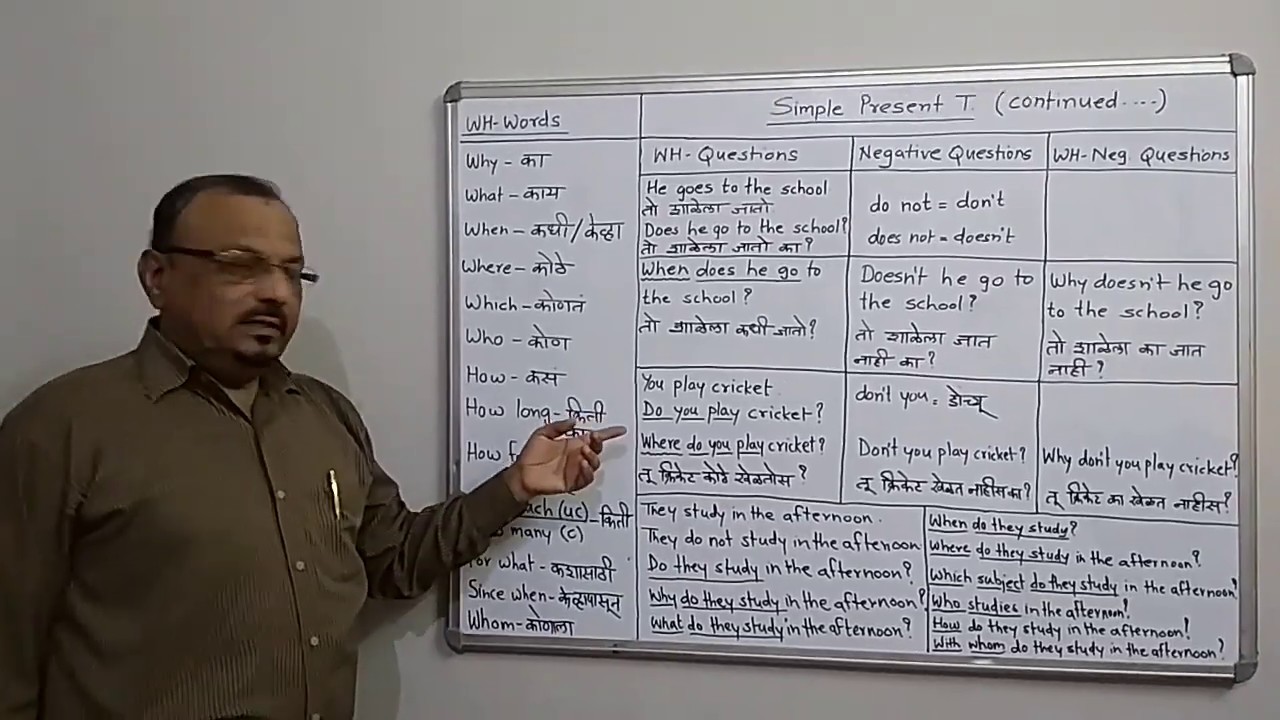 WH-Words
Why - का
What - काय
When - कधी/केव्हा
Where - कोठे
Which - कोणतं
Who - कोण
How - कसं
How long - किती
How
(uc) - किती
many (C)
For what - कशासाठी
Since when - केव्हापासून
Whom - कोणाला
Simple Present T. (continued....)
WH- Questions
He goes to the school
तो शाळेला जातो.
Does he go to the school?
तो शाळेला जातो का?
When does he go to
the school?
तो शाळेला कधी जातो?
You play cricket.
Do you play cricket?
Where do you play cricket?
तू क्रिकेट कोठे खेळतोस?
Negative Questions
do not = don't
does not = doesn't
Doesn't he go to
the school?
तो शाळेला जात
नाही का?
don't you = डोन्च्यू
Don't you play cricket?
तू क्रिकेट खेळत नाहीस का?
WH-Neg. Questions
Why doesn't he go
to the school?
तो शाळेला का जात
नाही?
Why don't you play cricket?
तू क्रिकेट का खेळत नाहीस?
They study in the afternoon.
They do not study in the afternoon
Do they study in the afternoon?
Why do they study in the afternoon?
What do they study in the afternoon?
When do they study?
Where do they study in the afternoon?
Which subject do they study in the afternoon?
Who studies in the afternoon?
How do they study in the afternoon?
With whom do they study in the afternoon?